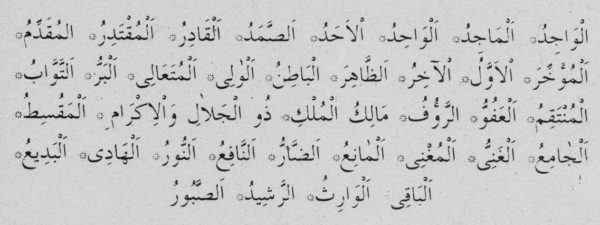 الْوَاجِدُ ۞ اَلْمَاجِدُ ۞ اَلْوَاحِدُ ۞ اَلْاَحَدُ ۞ اَلصَّمَدُ ۞ اَلْقَادِرُ ۞ اَلْمُقْتَدِرُ ۞ المُقَدِّمُ ۞
اَلْمُؤَخِّرَ ۞ اَلْاَوَّلُ ۞ اَلْآخِرُ ۞ اَلظَّاهِرَ ۞ اَلْبَاطِنُ ۞ اَلْوٰلِى ۞ اَلْمُتَعَالِى ۞ اَلْبَرُّ ۞ اَلتَّوَّابُ ۞
اَلْمُنْتَقِمُ ۞ اَلْعَفُوُّ ۞ الرَّؤُفُ ۞ مَالِكُ الْمُلْكِ ۞ ذُو الْجَلاٰلِ وَالْاِكْرَامِ ۞ اَلْمَقُسِطُ ۞
اَلْجٰامِعُ ۞ اَلْغَنِىُّ ۞ اَلْمُغْنِى ۞ اَلْمٰانِعُ ۞ اَلضَّارُّ ۞ اَلنَّافِعُ ۞ اَلنُّورُ ۞ اَلْهَادِى ۞ اَلْبَدِيعُ ۞
اَلْبَاقِى اَلْوَارِثُ ۞ الرَّشِيدُ ۞ اَلصَّبُورُ